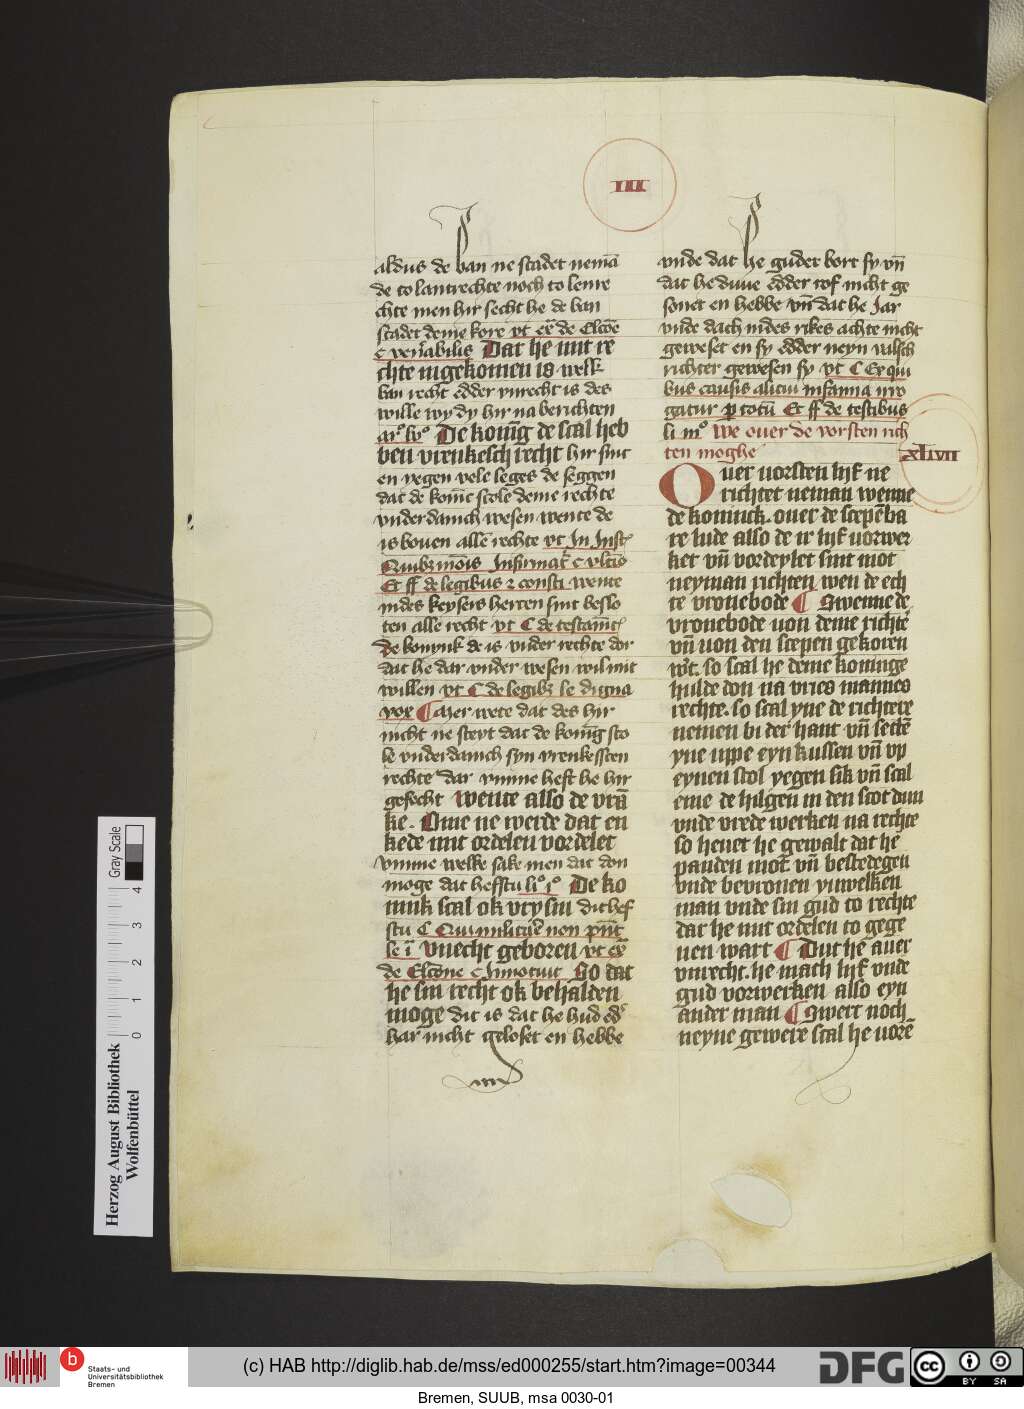 III
aldus de ban ne scadet nemā
de to lantrechte noch to lenre
chte men hir secht he de ban
scadet deme kore vt ex̄ de Elcōe
c ven̄abilis Dat he mit re
chte ingekomen is welk
ban recht edder vnrecht is des
wille wy dy hir na berichten
ar⁰ lv⁰ De konīg de scal heb
ben vrenkesch recht hir sint
en yegen vele leges de seggen
dat de konīc scole deme rechte
vnderdanich wesen wente de
is bouen allē rechte vt In Inst
Et ff de legibus ⁊ consti wente
indes keysers herten sint beslo
ten alle recht vt C de testam̄t
de konynk de is vnder rechte dor
dat he dar vnder wesen wil mit
willen vt C de legibȝ le digna
vox ¶ Auer wete dat des hir
nicht ne steyt dat de konīg sto
le vnderdanich syn vrenkessten
rechte dar vmme heft he hir
gesecht wente also de vrā
ke. Ome ne werde dat en
kede mit ordelen vordelet
vmme welke sake men dat don
moge dat hefstu li⁰ i⁰ De ko
nink scal ok vry sin dit hef
stu C
le ī vnecht geboren vt ex̄
de Elcōne c Innotuit So dat
he sin recht ok behalden
moge dit is dat he hud edd'
har nicht geloset en hebbe
vnde dat he guder bort sy vn̄
dat he duue edder rof nicht ge
sonet en hebbe vn̄ dat he Jar
vnde dach indes rikes achte nicht
geweset en sy edder neyn valsch
richter gewesen sy vt C Ex qui
bus causis alicui infamia irro
gatur ꝑ totū Et ff de testibus
li m⁰ we ouer de vorsten rich
ten moghe
XLVII
Ouer vorsten lyf ne
richtet neman wenne
de konnick. ouer de scepēba
re lude also de ir lyf vorwer
ket vn̄ vordeylet sint mot
neyman richten wen de ech
te vronebode ¶ Swenne de
vronebode von deme richte
vn̄ von den scepen gekoren
wt. so scal he deme koninge
hulde don na vries mannes
rechte. so scal yne de richtere
nemen bi der hant vn̄ settē
yne uppe eyn kussen vn̄ vp
eynen stol yegen sik vn̄ scal
eme de hilgen in den scot dun
vnde vrede werken na rechte
so heuet he gewalt dat he
panden mot. vn̄ bestedegen
vnde bevronen yuwelken
man vnde sin gud to rechte
dat he mit ordelen to gege
uen wart ¶ Dut he auer
vnrecht. he mach lyf vnde
gud vorwerken also eyn
ander man ¶ Swert noch
neyne gewere scal he vorē
Herzog August Bibliothek
Wolfenbüttel
0 1 2 3 4
Gray Scale
b
Staats- und
Universitätsbibliothek
Bremen
(c) HAB http://diglib.hab.de/mss/ed000255/start.htm?image=00344
DFG
cc
BY SA
Bremen, SUUB, msa 0030-01